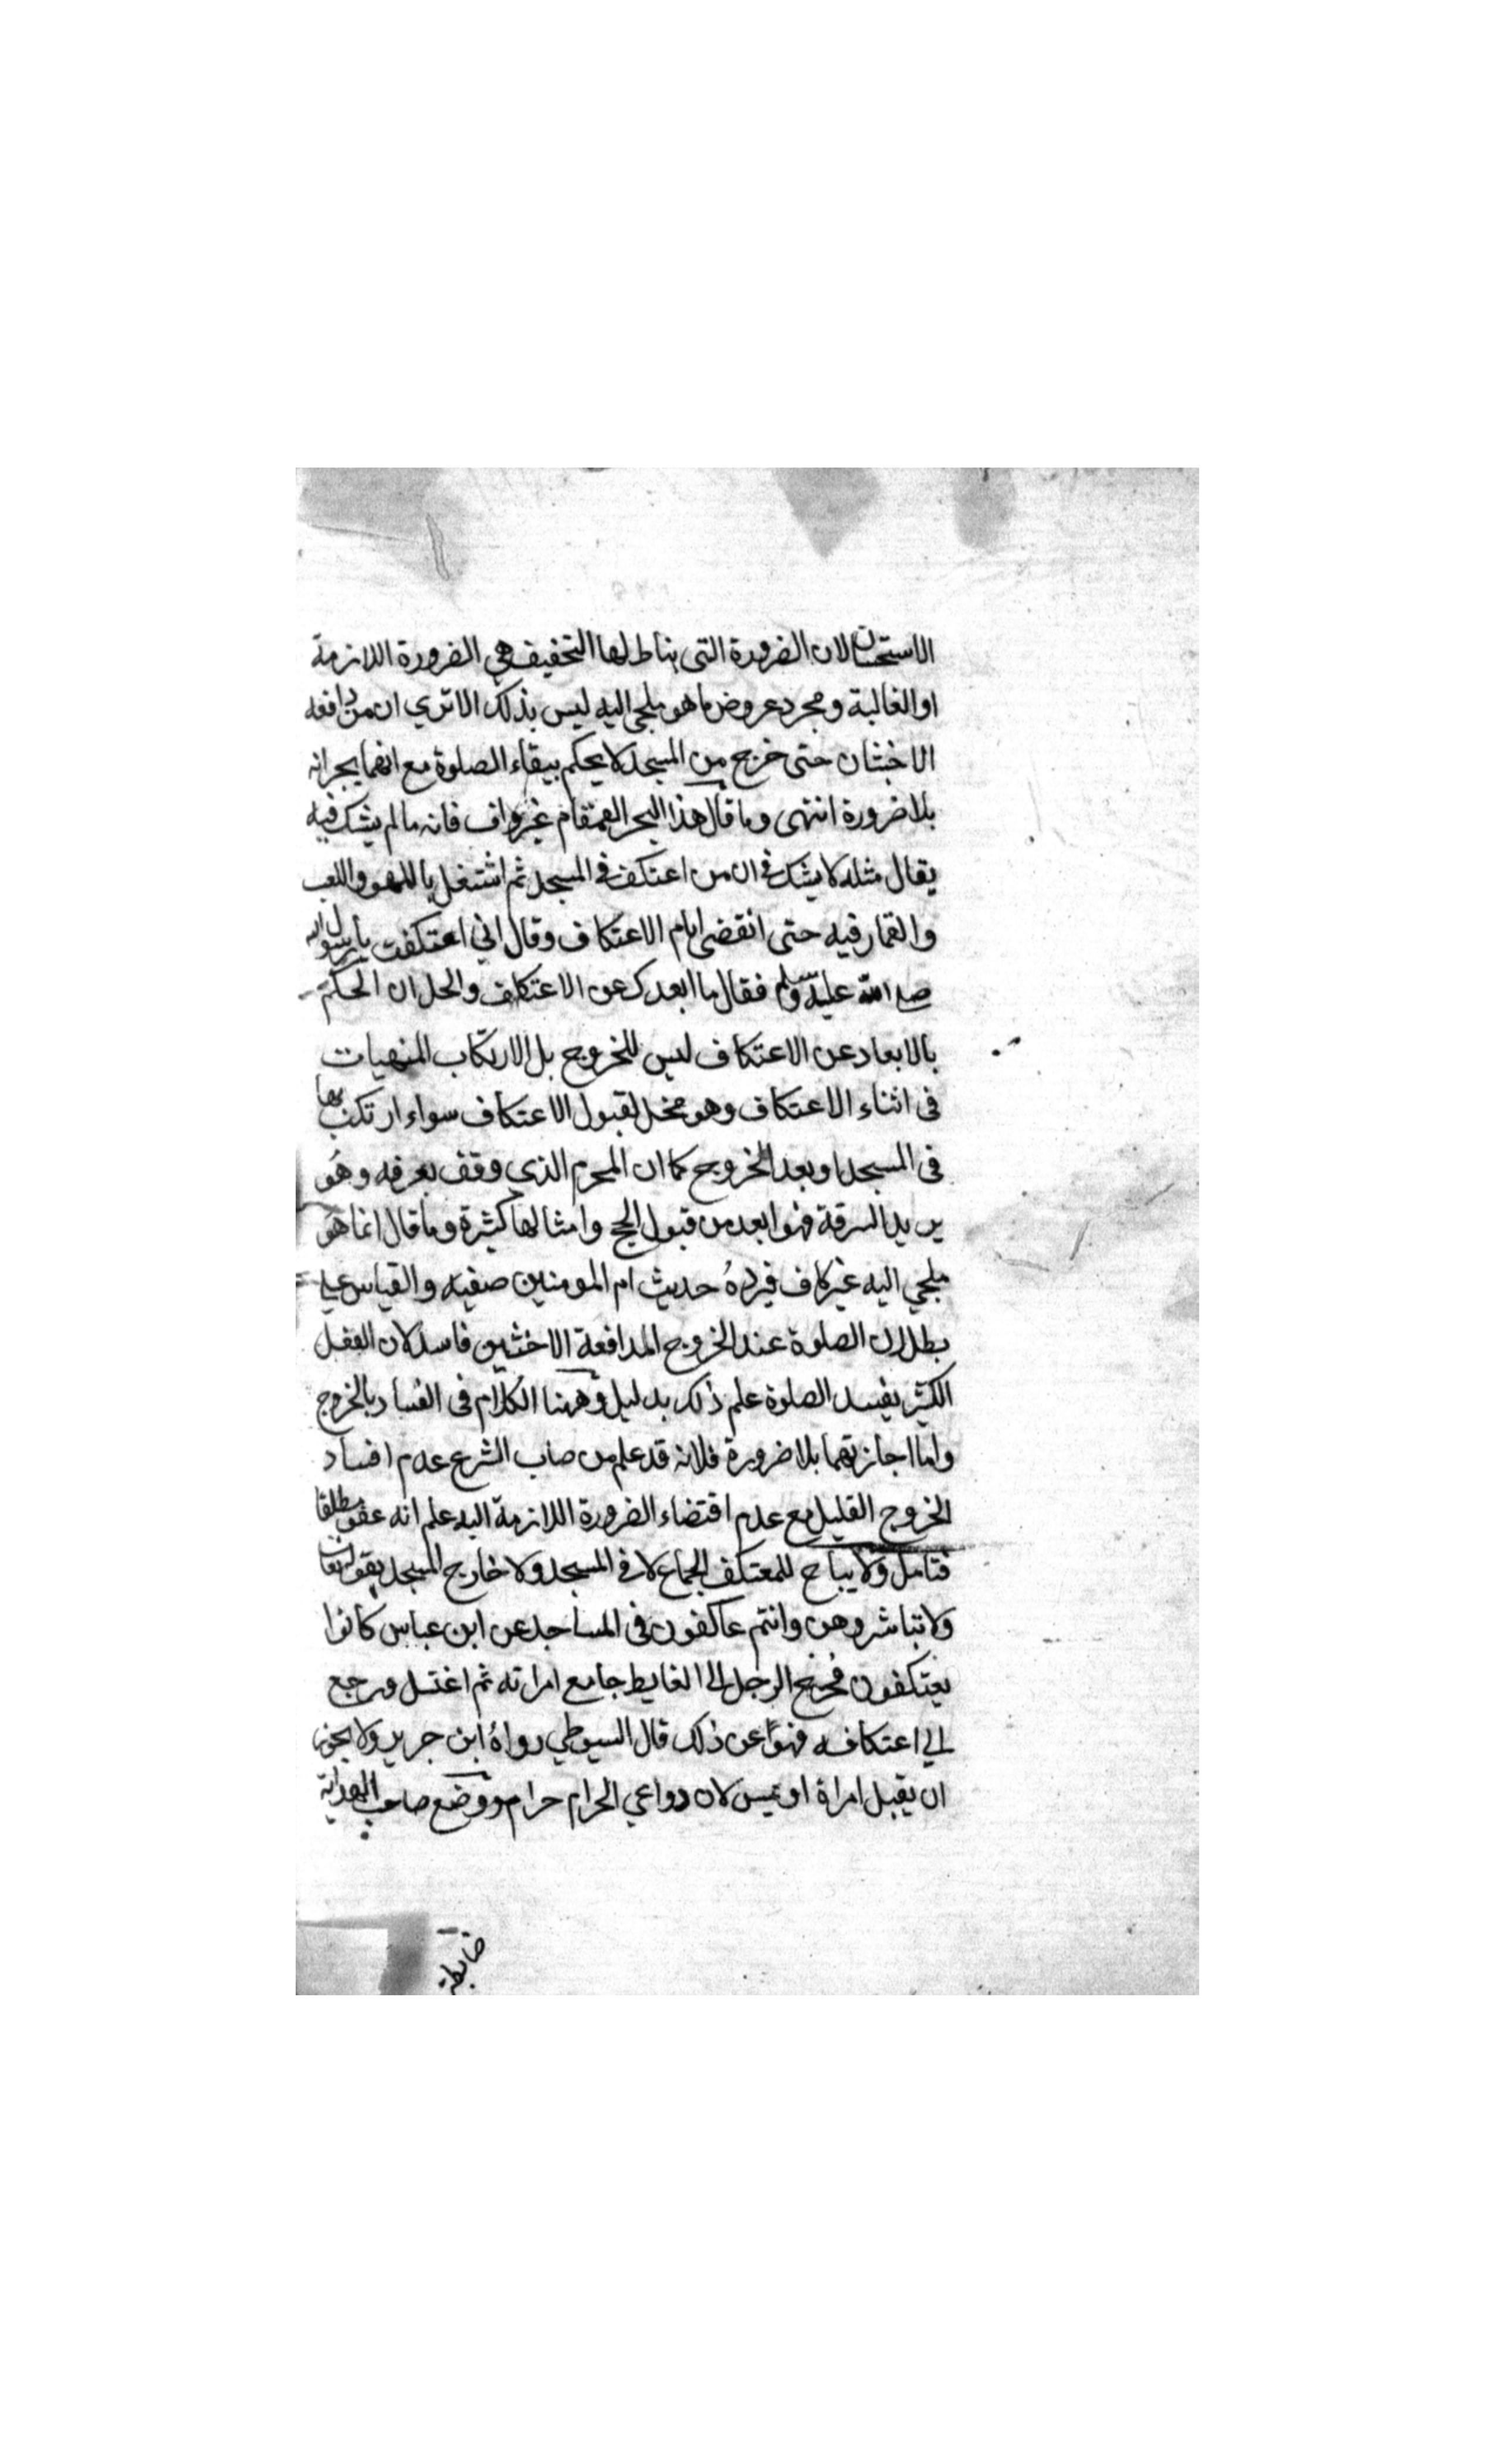 الاستحسان لان الضرورة التى يناط لها التخفيف هي الضرورة اللازمة
او الغالبة ومجرد عروض ما هو ملجى اليه ليس بذلك الا تري ان من دافعه
الاخبثان حتى خرج من المسجد لا يحكم ببقاء الصلوة مع انهما يجيزانه
بلا ضرورة انتهى وما قال هذا البحر القمقام غير واف فانه ما لم يشك فيه
يقال مثله لا يشك فى ان من اعتكف فى المسجد ثم اشتغل باللهو واللعب
والقمار فيه حتى انقضى ايام الاعتكاف وقال اني اعتكفت يا رسول الله
صلى الله عليه وسلم فقال ما ابعدك عن الاعتكاف والحل ان الحكم
بالابعاد عن الاعتكاف ليس للخروج بل لارتكاب المنهيات
فى اثناء الاعتكاف وهو مخل لقبول الاعتكاف سواء ارتكب بها
فى المسجد او بعد الخروج كما ان المحرم الذي وقف بعرفه وهو
يريد السرقة فهو ابعد من قبول الحج وامثالها كثيرة وما قال انما هو
ملجي اليه غير كاف فيرده حديث ام المومنين صفيه والقياس علي
بطلان الصلوة عند الخروج لمدافعة الاخبثين فاسد لان الفعل
الكثير يفسد الصلوة علم ذلك بدليل وههنا الكلام فى الفساد بالخروج
واما اجازتهما بلا ضرورة فلانه قد علم من صاب الشرع عدم افساد
الخروج القليل مع عدم اقتضاء الضرورة اللازمة اليه علم انه عفو مطلقا
فتامل ولا يباح للمعتكف الجماع لا فى المسجد ولا خارج المسجد بقوله تعا
ولا تباشروهن وانتم عاكفون فى المساجد عن ابن عباس كانوا
يعتكفون فخرج الرجل الى الغايط جامع امراته ثم اغتسل ورجع
الي اعتكافه فنهوا عن ذلك قال السيوطي رواه ابن جرير ولا يجوز
ان يقبل امراة او يمس لان دواعي الحرام حرام ووضع صاحب الهداية
ضابطة